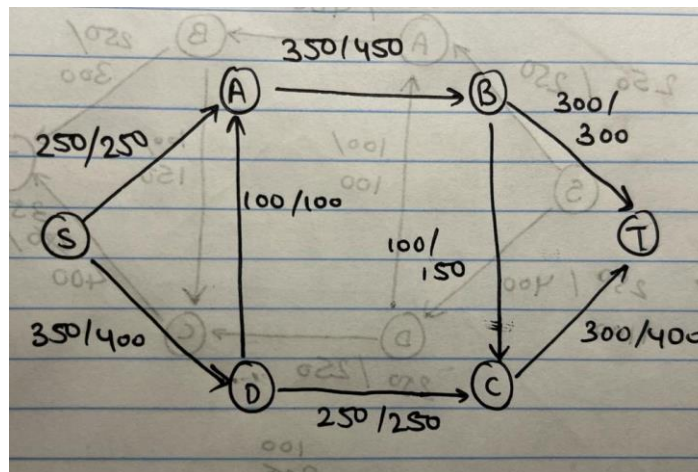 350/450
A
B
300/
300
250/250
100/100
S
T
100/
150
350/400
300/400
D
C
250/250